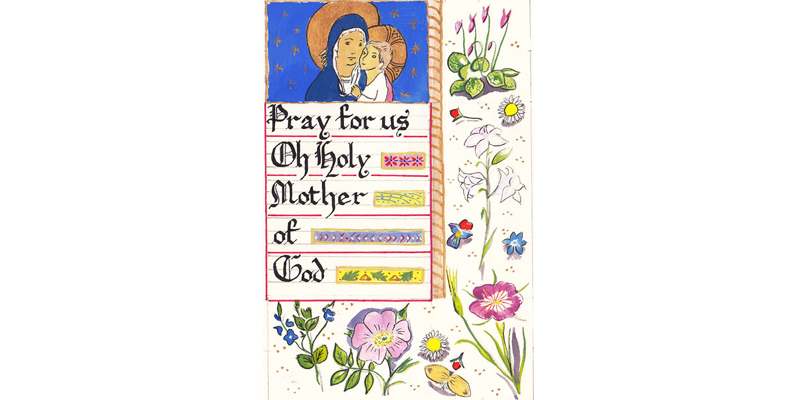 Pray for us
Oh Holy
Mother
of
God